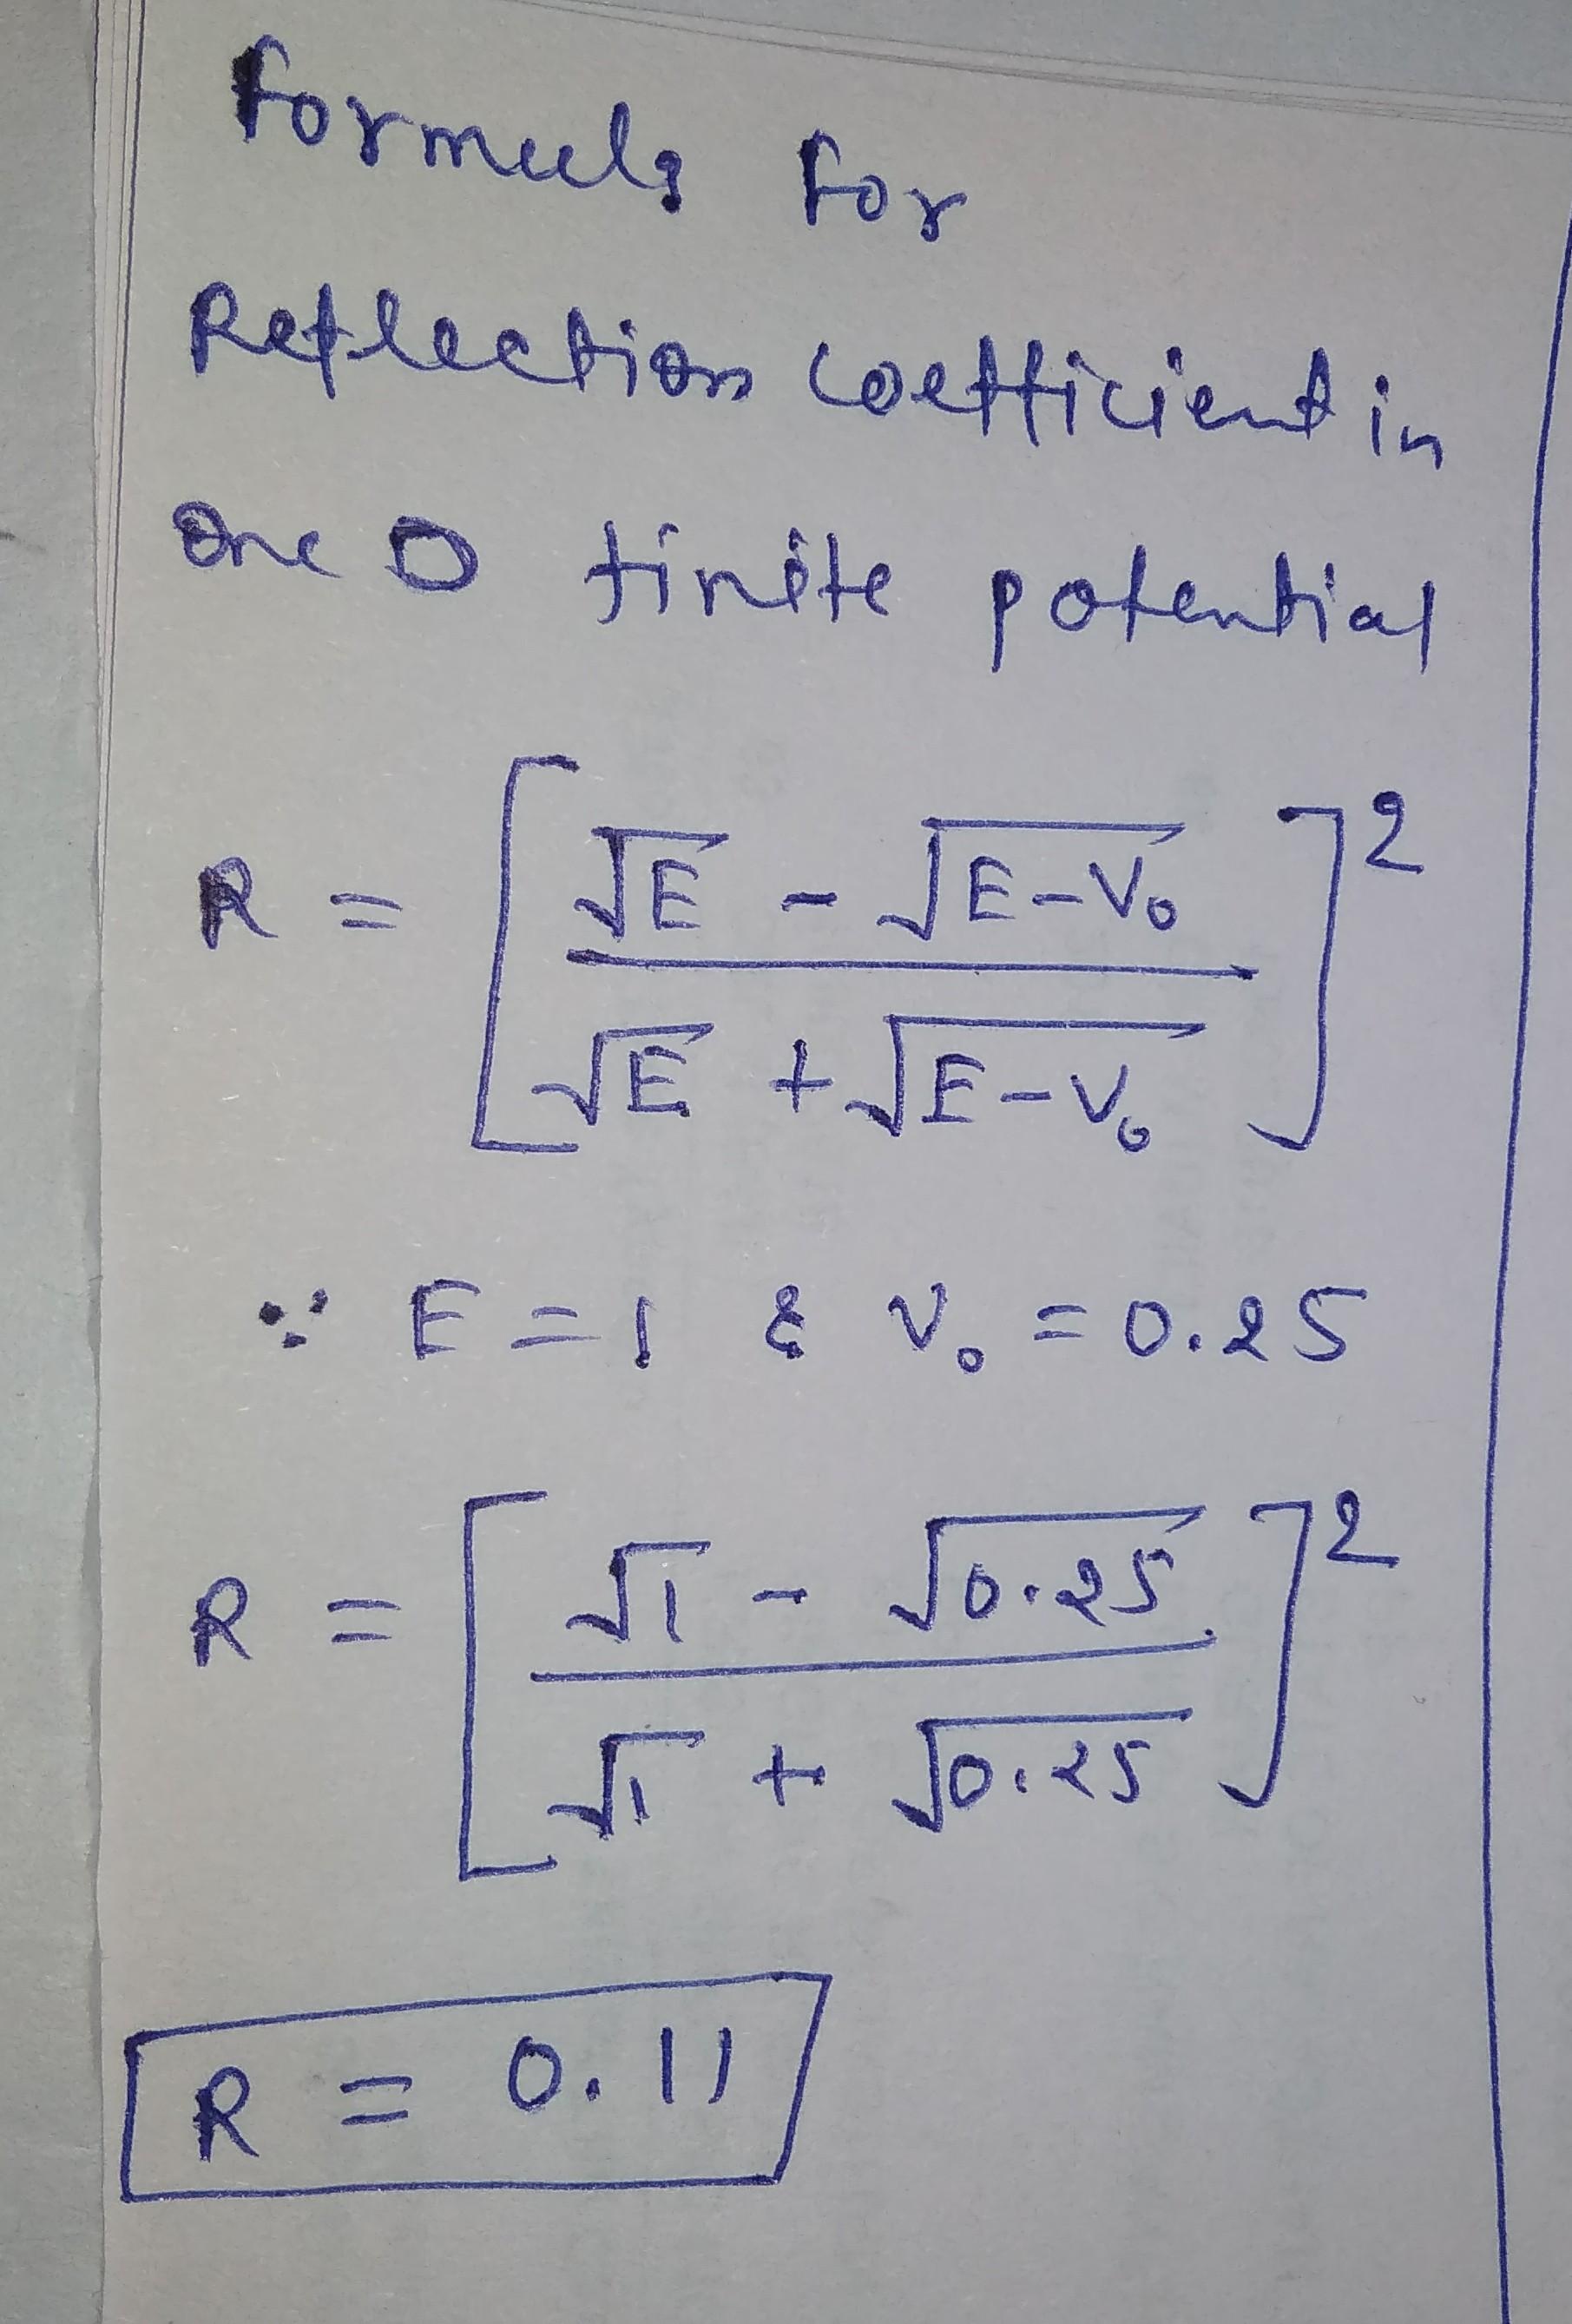 Formula for
Reflection coefficient in
One D finite potential
R = [ (√E - √E-V₀) / (√E + √E-V₀) ]²
∵ E = 1 & V₀ = 0.25
R = [ (√1 - √0.25) / (√1 + √0.25) ]²
R = 0.11